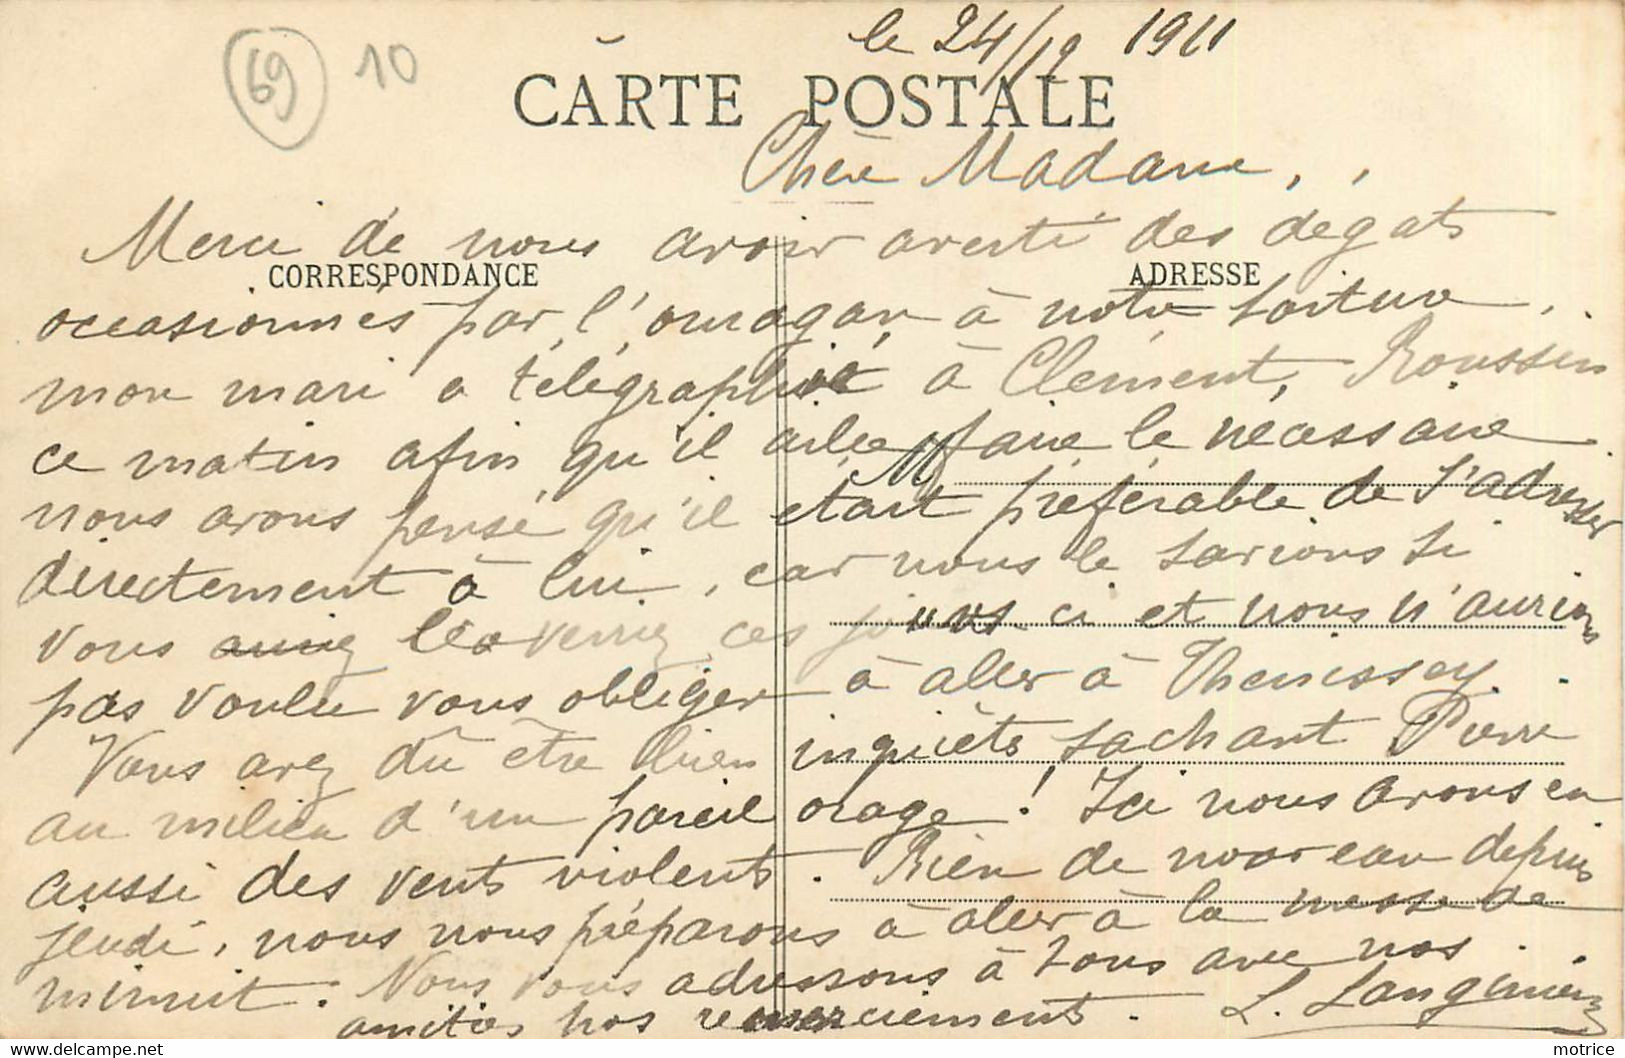 69 10
le 24/12 1911
CARTE POSTALE
Chère Madame,
Merci de nous avoir averti des dégats
CORRESPONDANCE ADRESSE
occasionnés par l'ouragan à notre toiture.
mon mari a télégraphié à Clément Roussin
ce matin afin qu'il aille faire le nécessaire.
M
nous avons pensé qu'il était préférable de s'adresser
directement à lui, car nous le savions si
vous verriez ces jours ci et nous n'aurions
pas voulu vous obliger à aller à Thenissey.
Vous avez dû être bien inquiets sachant Pierre
au milieu d'un pareil orage! Ici nous avons eu
aussi des vents violents. Rien de nouveau depuis
jeudi, nous nous préparons à aller à la messe de
minuit. Nous vous adressons à tous avec nos
amitiés nos remerciements. L.
motrice
www.delcampe.net